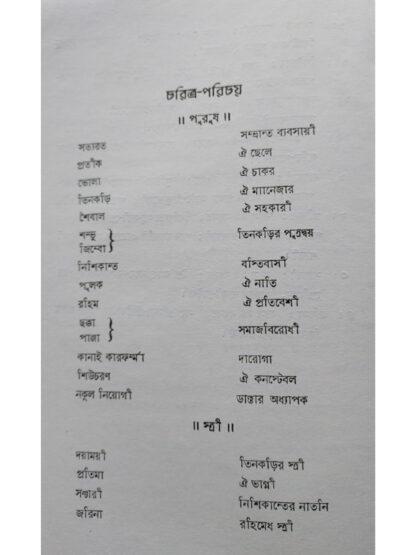 চরিত্র-পরিচয়
॥ পুরুষ ॥
সত্যব্রত সম্ভ্রান্ত ব্যবসায়ী
প্রতীক ঐ ছেলে
ভোলা ঐ চাকর
তিনকড়ি ঐ ম্যানেজার
শৈবাল ঐ সহকারী
শম্ভু } তিনকড়ির পুত্রদ্বয়
জিম্বো }
নিশিকান্ত বস্তিবাসী
পুলক ঐ নাতি
রহিম ঐ প্রতিবেশী
ছক্কা } সমাজবিরোধী
পাঞ্জা }
কানাই কারফর্ম্মা দারোগা
শিউচরণ ঐ কনস্টেবল
নকুল নিয়োগী ডাক্তার অধ্যাপক
॥ স্ত্রী ॥
দয়াময়ী তিনকড়ির স্ত্রী
প্রতিমা ঐ ভাগ্নী
সঞ্চারী নিশিকান্তের নাতনি
জরিনা রহিমেধ স্ত্রী